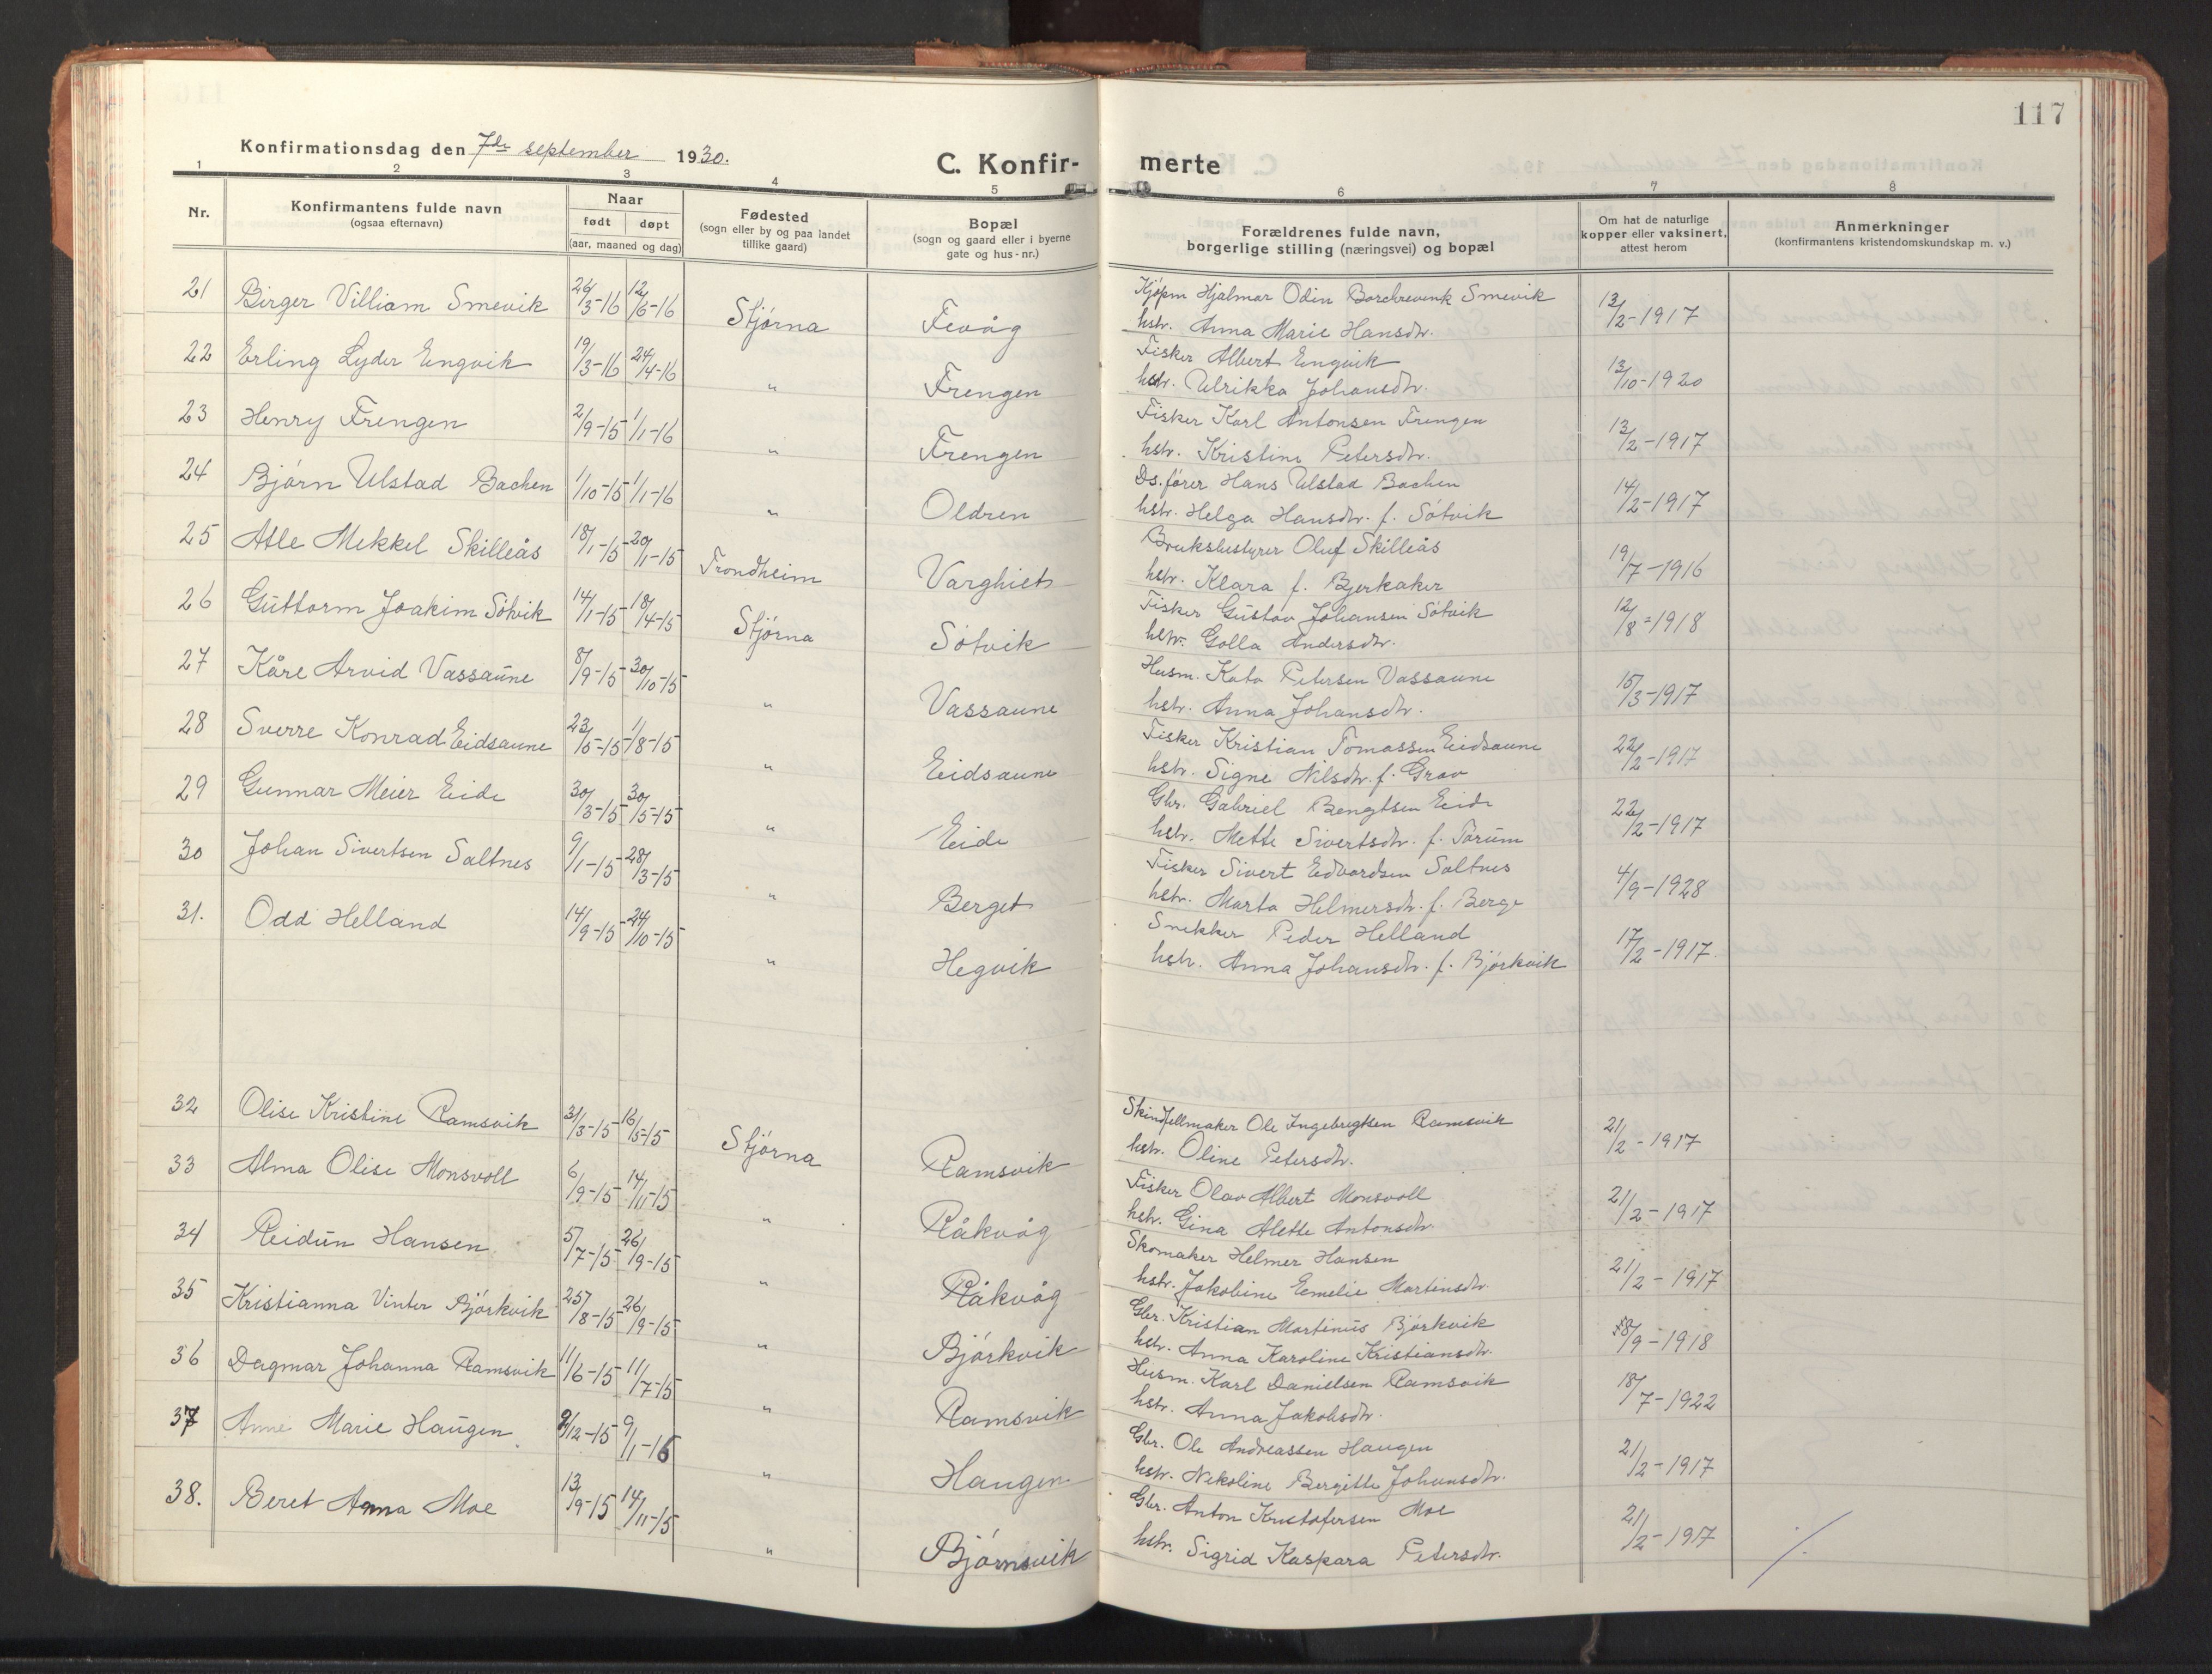 117
Konfirmationsdag den 7de september 1930.
C. Konfir- merte
1 2 3 4 5 6 7 8
Nr.
Konfirmantens fulde navn
(ogsaa efternavn)
Naar
født døpt
(aar, maaned og dag)
Fødested
(sogn eller by og paa landet
tillike gaard)
Bopæl
(sogn og gaard eller i byerne
gate og hus-nr.)
Forældrenes fulde navn,
borgerlige stilling (næringsvei) og bopæl
Om hat de naturlige
kopper eller vaksinert,
attest herom
Anmerkninger
(konfirmantens kristendomskundskap m. v.)
21 Birger Villiam Smevik 26/3-16 12/6-16 Stjørna Fevåg Kjøpm Hjalmar Odin Borchrevink Smevik 13/2-1917
hstr. Anna Marie Hansdtr.
22 Erling Lyder Engvik 19/3-16 24/4-16 " Frengen Fisker Albert Engvik 13/10-1920
hstr. Ulrikka Johansdtr.
23 Henry Frengen 2/9-15 1/1-16 " Frengen Fisker Karl Antonsen Frengen 13/2-1917
hstr. Kristine Petersdtr.
24 Bjørn Ulstad Bachen 1/10-15 1/1-16 " Oldren Ds.fører Hans Ulstad Bachen 14/2-1917
hstr. Helga Hansdtr. f. Søtvik
25 Atle Mekkel Skilleås 18/1-15 20/1-15 Trondheim Varghiet Bruksbestyrer Oluf Skilleås 19/7-1916
hstr. Klara f. Bjerkaker
26 Guttorm Joakim Søtvik 14/1-15 18/4-15 Stjørna Søtvik Fisker Gustav Johansen Søtvik 12/8-1918
hstr. Golla Andersdtr.
27 Kåre Arvid Vassaune 8/9-15 30/10-15 " Vassaune Husm. Kato Petersen Vassaune 15/3-1917
hstr. Anna Johansdtr.
28 Sverre Konrad Eidsaune 23/5-15 1/8-15 " Eidsaune Fisker Kristian Tomassen Eidsaune 22/2-1917
hstr. Signe Nilsdtr. f. Grav
29 Gunnar Meier Eide 30/3-15 30/5-15 " Eide Gbr. Gabriel Bengtsen Eide 22/2-1917
hstr. Mette Sivertsdtr. f. Tørum
30 Johan Sivertsen Saltnes 9/1-15 28/3-15 " Berget Fisker Sivert Edvardsen Saltnes 4/9-1928
hstr. Marta Helmersdtr. f. Berge
31. Odd Helland 14/9-15 24/10-15 " Hegvik Snekker Peder Helland 17/2-1917.
hstr. Anna Johansdtr. f. Bjørkvik
32 Olise Kristine Ramsvik 31/3-15 16/5-15 Stjørna Ramsvik Skindfellmaker Ole Ingebregtsen Ramsvik 21/2-1917
hstr. Oline Petersdtr.
33 Alma Olise Monsvoll 6/9-15 14/11-15 " Råkvåg Fisker Olav Albert Monsvoll 21/2-1917
hstr. Gina Alette Antonsdtr.
34 Reidun Hansen 5/7-15 26/9-15 " Råkvåg Skomaker Helmer Hansen 21/2-1917
hstr. Jakobine Emelie Martinsdtr
35 Kristianna Vinter Bjørkvik 25/8-15 26/9-15 " Bjørkvik Gbr. Kristian Martinus Bjørkvik 18/9-1918
hstr. Anna Karoline Kristiansdtr.
36 Dagmar Johanna Ramsvik 11/6-15 11/7-15 " Ramsvik Husm. Karl Danielsen Ramsvik 18/7-1922
hstr. Anna Jakobsdtr.
37 Anne Marie Haugen 9/12-15 9/1-16 " Haugen Gbr. Ole Andreassen Haugen 21/2-1917
hstr. Nekoline Bergitte Johansdtr.
38. Beret Anna Moe 13/9-15 14/11-15 " Bjørnsvik Gbr. Anton Kristofersen Moe 21/2-1917
hstr. Sigrid Kaspara Petersdtr.